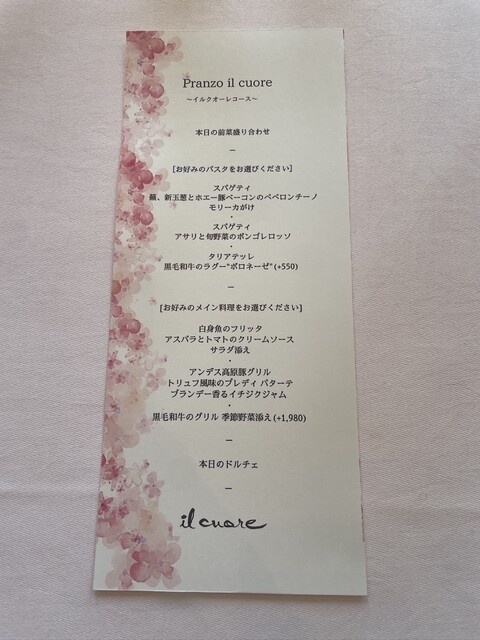 Pranzo il cuore
～イルクオーレコース～
本日の前菜盛り合わせ
ー
[お好みのパスタをお選びください]
スパゲティ
蕪、新玉葱とホエー豚ベーコンのペペロンチーノ
モリーカがけ
・
スパゲティ
アサリと旬野菜のボンゴレロッソ
・
タリアテッレ
黒毛和牛のラグー"ボロネーゼ"(+550)
ー
[お好みのメイン料理をお選びください]
白身魚のフリッタ
アスパラとトマトのクリームソース
サラダ添え
・
アンデス高原豚グリル
トリュフ風味のプレディ パターテ
ブランデー香るイチジクジャム
・
黒毛和牛のグリル 季節野菜添え(+1,980)
ー
本日のドルチェ
ー
il cuore